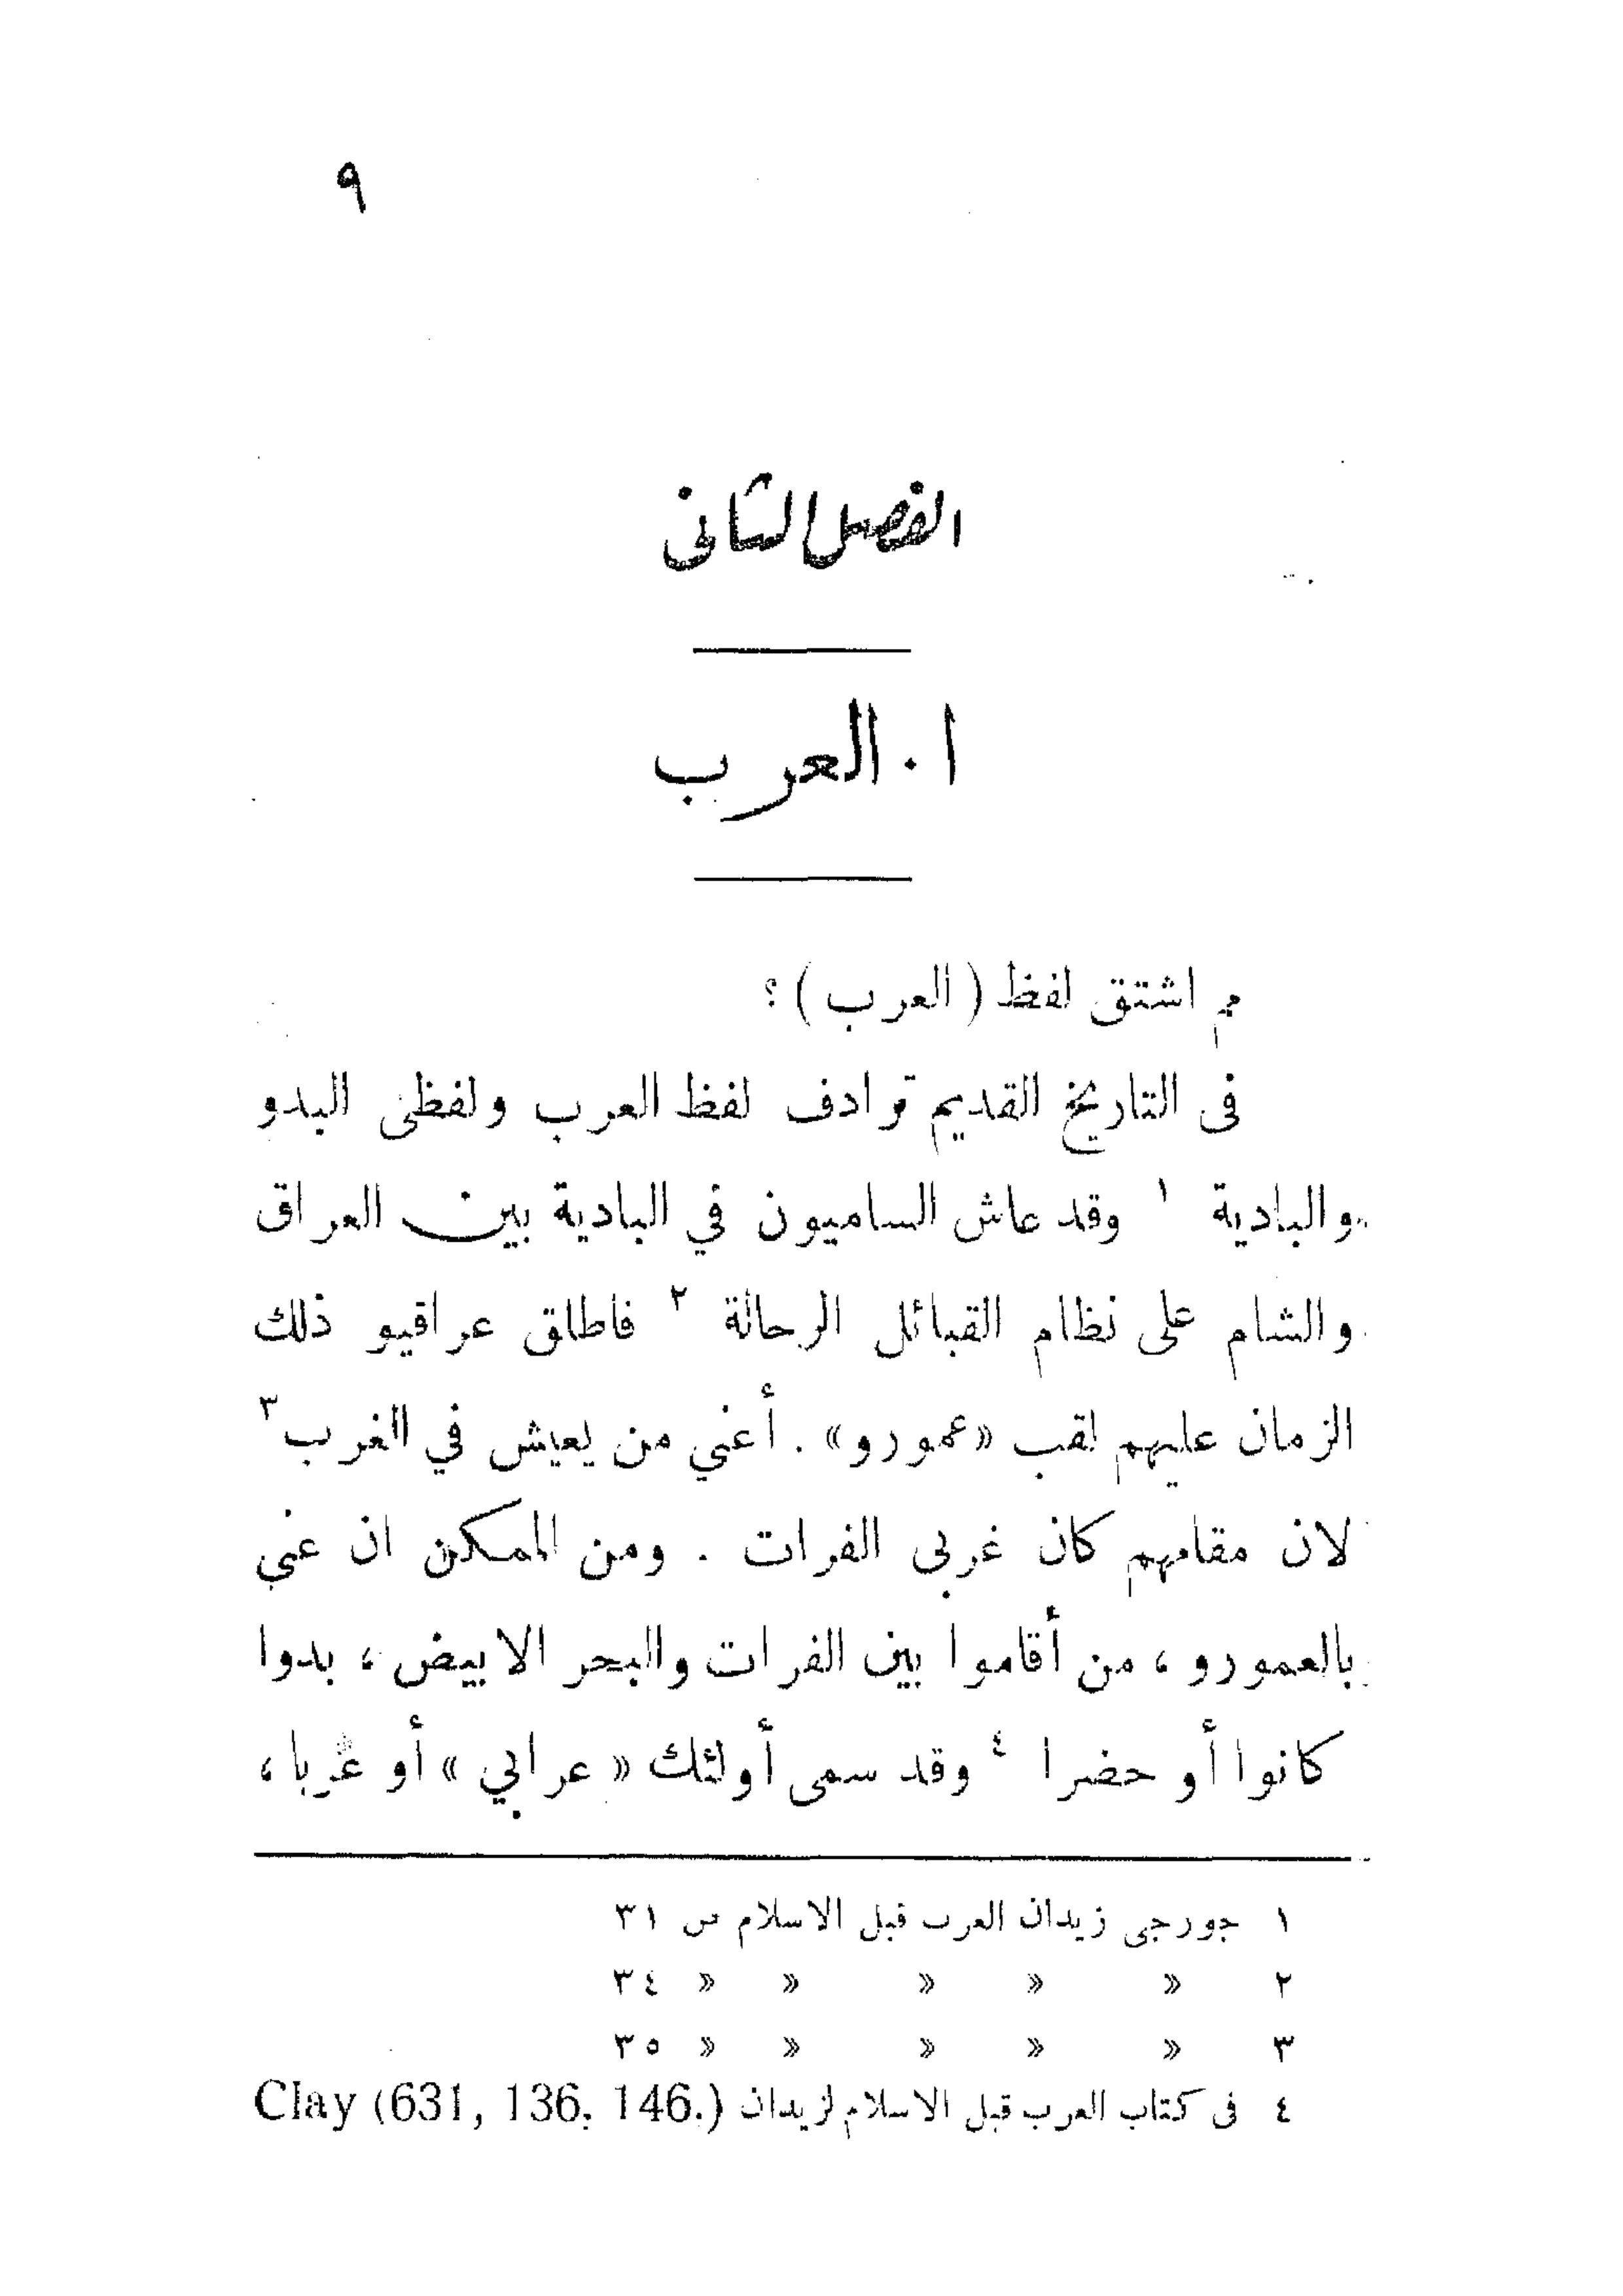 ٩
الفصل الثانى
١ . العرب
مم اشتق لفظ ( العرب ) ؟
فى التاريخ القديم ترادف لفظ العرب ولفظى البدو
والبادية ١ وقد عاش الساميون في البادية بين العراق
والشام على نظام القبائل الرحالة ٢ فاطلق عراقيو ذلك
الزمان عليهم لقب «عمورو» . أعني من يعيش في الغرب ٣
لان مقامهم كان غربى الفرات . ومن الممكن ان عنى
بالعمورو ، من أقاموا بين الفرات والبحر الابيض ، بدوا
كانوا أو حضرا ٤ وقد سمى أولئك « عرابي » أو عربا ،
١ جورجى زيدان العرب قبل الاسلام ص ٣١
٢ » » » » » ٣٤
٣ » » » » » ٣٥
٤ فى كتاب العرب قبل الاسلام لزيدان Clay (631, 136. 146.)